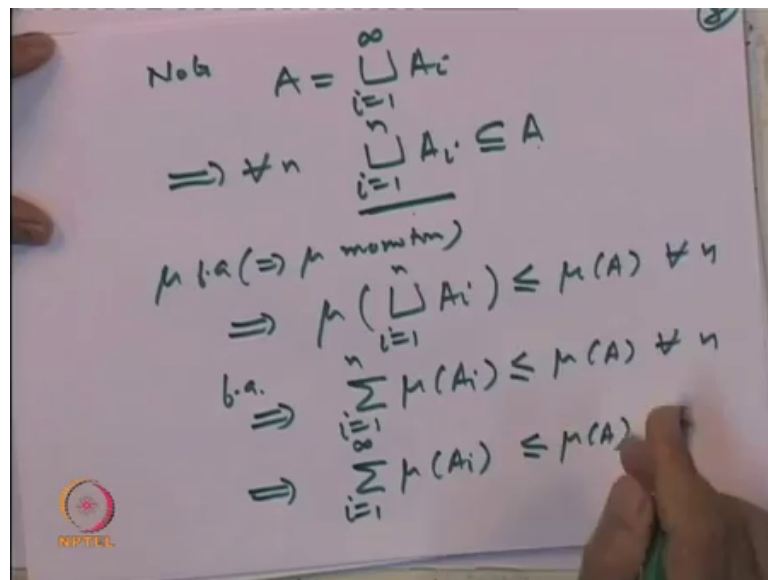 Note A = ∞⊔i=1 Ai
⟹ ∀ n n⊔i=1 Ai ⊆ A
μ f.a (⟹ μ monotone)
⟹ μ ( n⊔i=1 Ai ) ≤ μ (A) ∀ n
f.a. ⟹ n∑i=1 μ (Ai) ≤ μ (A) ∀ n
⟹ ∞∑i=1 μ (Ai) ≤ μ (A)
NPTEL